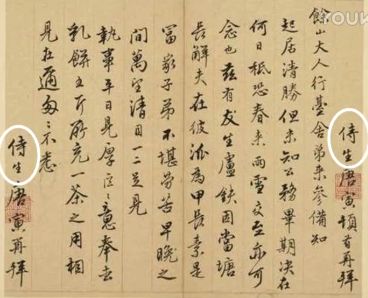 侍生唐寅頓首再拜
餘山大人行臺舍弟來參備知
起居清勝但未知公務畢期決在
何日祗恐春來雨雪交至亦可
念也茲有友生盧鈇因當塘
長解夫在彼派為甲長素是
冨家子弟不堪勞苦早晚之
間萬望清目一二足見
執事平日見厚意奉去
乳餅五斤所充一茶之用相
見在邇匆〻不悉
侍生唐寅再拜
YOUK